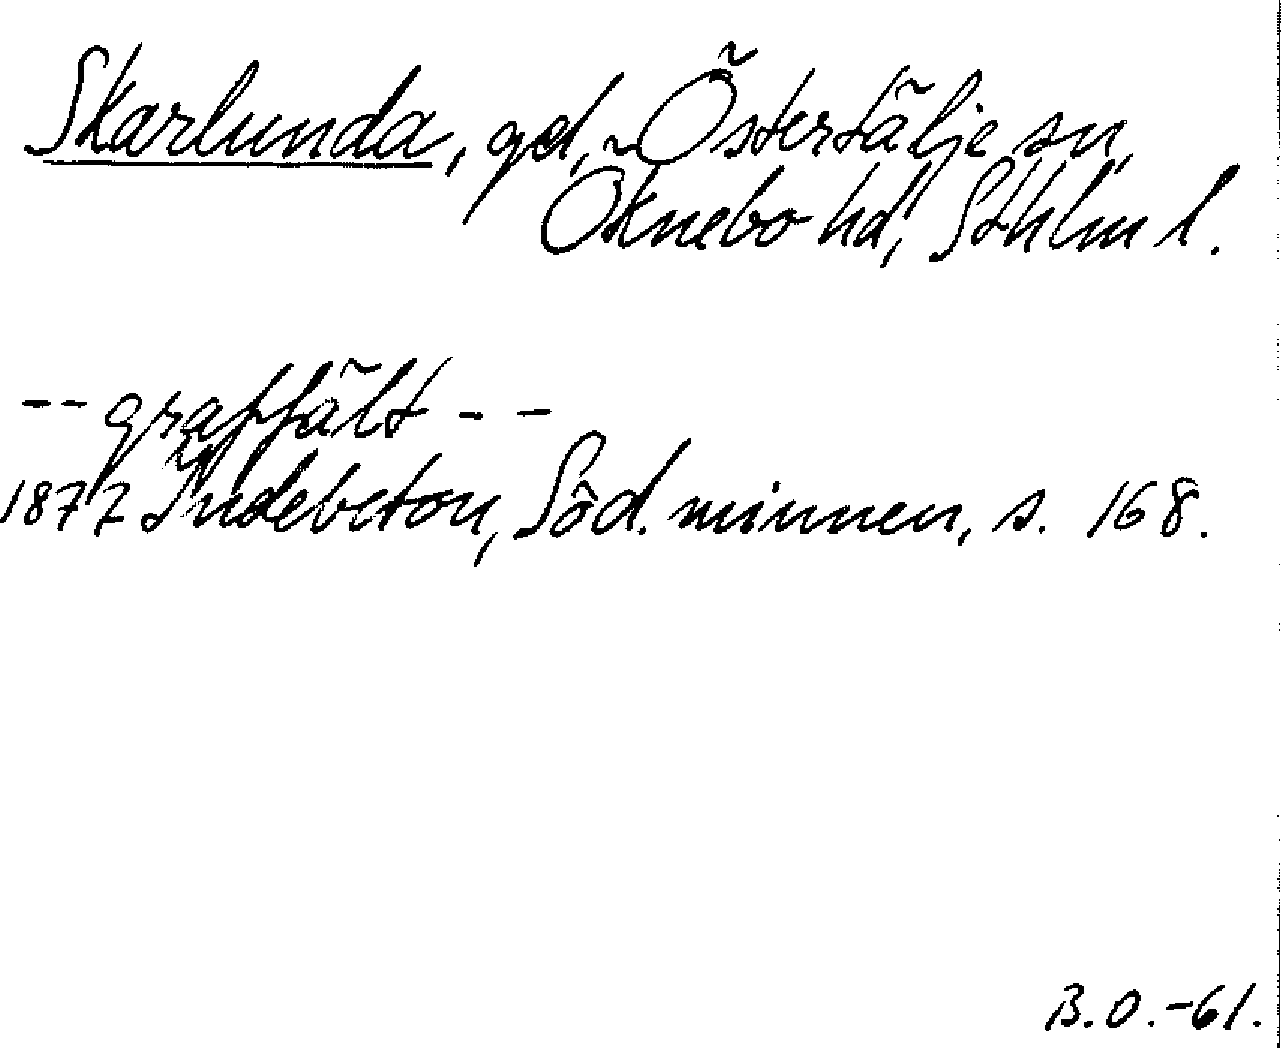 Skarlunda, gd, Östertälje sn,
Öknebo hd, Sthlm l.
-- graffält --
1877 Indebetou, Söd. minnen, s. 168.
B.O.-61.